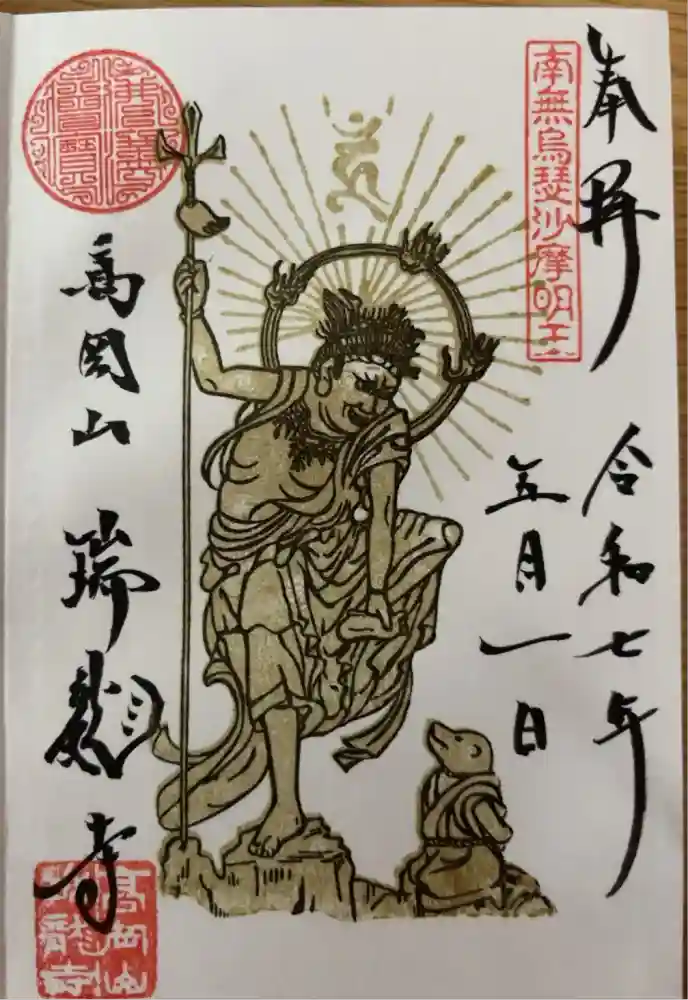 奉拝
南無烏瑟沙摩明王
令和七年
五月一日
高岡山 瑞龍寺
高岡山
瑞龍寺